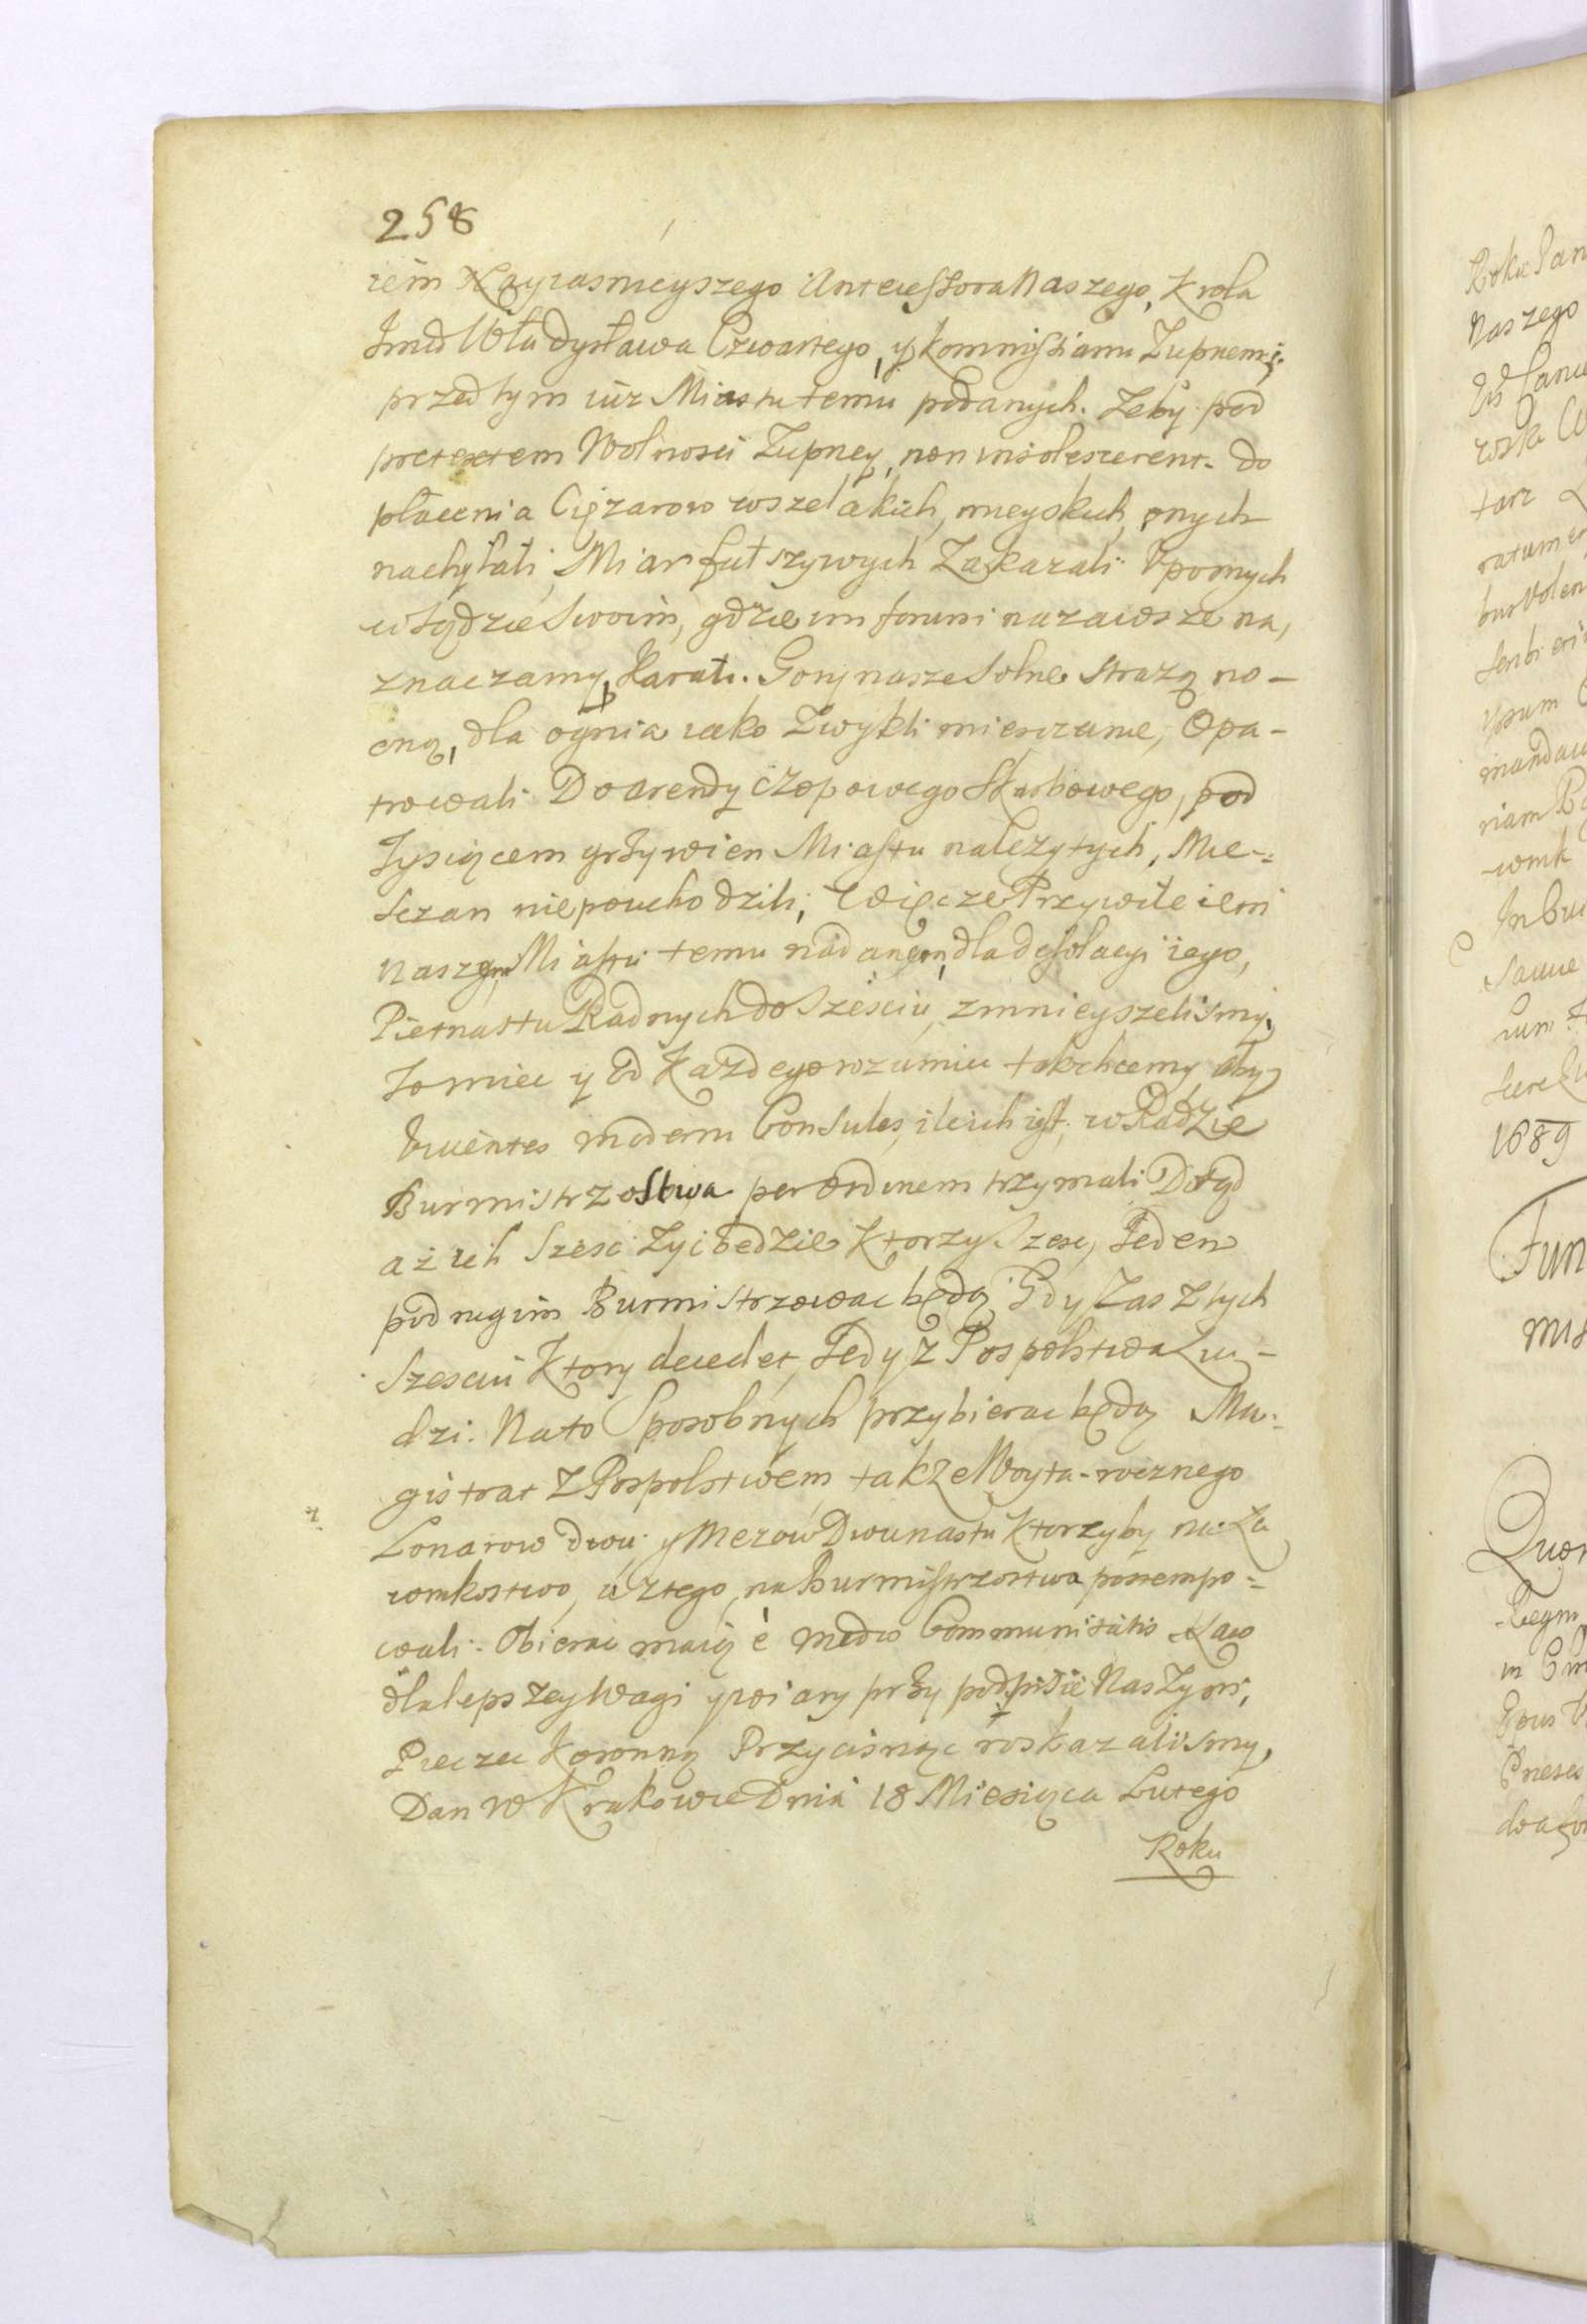 258
iem Nayiasnieyszego Antecessora Naszego, Krola
Jmci Władysława Czwartego, y Kommissiami Zupnemi,
przed tym iuz Miastu temu podanych. Zeby pod
pretextem Wolnosci Zupney, non insolescerent. do
płacenia Cięzarow wszelakich, mieyskich onych
nachylali, Miar fałszywych Zakazali Upornych
w Sądzie Swoim, gdzie im forum nazawsze na,
znaczamy, Karali. Gory nasze Solne Strazą no-
cną, dla ognia iako Zwykli mieszczanie, Opa-
trowali Do arendy Czopowego Skarbowego, pod
Tysiącem grzywien Miastu nalezytych, Mie-
szczan niepociochodzili; Więc ze Przywileiem
naszym Miastu temu nadanem, dla desolacyi iego,
Pietnastu Radnych do Sześciu, zmnieyszelismy,
To miec y Od Kazdego rozumiu tak chcemy, aby
Viventes moderni Consules, ile ich iest, w Radzie
Burmistrzostwa per ordinem trzymali Dotąd
aż ich Szesc Zyć bedzie Ktorzy Szesc, Jeden
pod rugim Burmistrzowac będą Gdy Zas z tych
Szesciu Ktory decedet, Tedy z Pospolstwa Lu-
dzi. Na to Sposobnych przybierac będą Ma-
gistrat Z Pospolstwem takze Woyta-rocznego
Lonarow dwu y Mezow Dwunastu Ktorzyby na Ła
wnikostwo, a z tego, na Burmistrzostwa postempo-
wali. Obierac maią è medio Communitatis Kaw
dla lepszey Wagi y wiary przy podpisie Naszym,
Pieczec Koronną Przycisnąc roskazalismy,
Dan W Krakowie Dnia 18 Miesiąca Lutego
Roku
Roku Pan
Naszego
tarz
1689
Fun